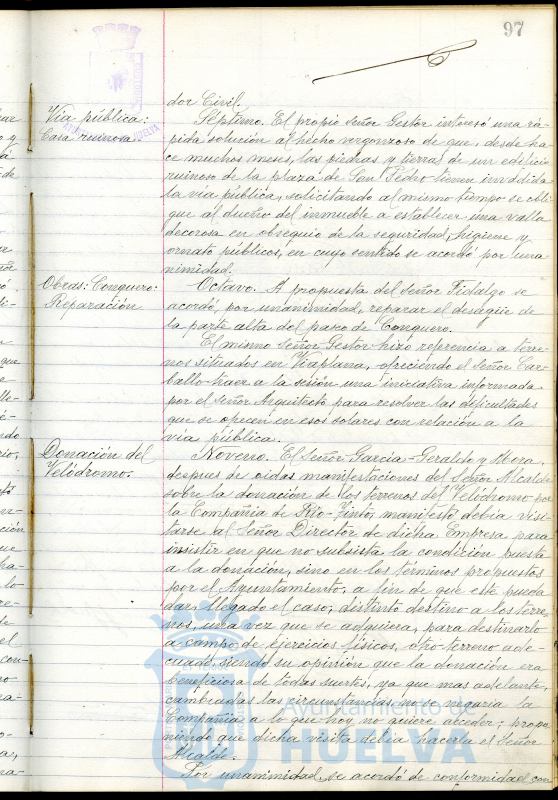 97
dor Civil.
Vía pública:
Casa ruinosa.
Séptimo. El propio Señor Gestor interesó una rá-
pida solución al hecho vergonzoso de que, desde ha-
ce muchos meses, las piedras y tierras de un edificio
ruinoso de la plaza de San Pedro tienen invadida
la vía pública, solicitando al mismo tiempo se obli-
gue al dueño del inmueble a establecer una valla
decorosa en obsequio de la seguridad, higiene y
ornato públicos, en cuyo sentido se acordó por una-
nimidad.
Obras: Conquero:
Reparación
Octavo. A propuesta del Señor Fidalgo se
acordó, por unanimidad, reparar el desagüe de
la parte alta del paseo de Conquero.
El mismo Señor Gestor hizo referencia a terre-
nos situados en Viaplana, ofreciendo el Señor Car-
ballo traer a la sesión una iniciativa informada
por el Señor Arquitecto para resolver las dificultades
que se ofrecen en esos solares con relación a la
vía pública.
Donación del
Velódromo.
Noveno. El Señor García-Geraldo y Mora,
despues de oidas manifestaciones del Señor Alcalde
sobre la donación de los terrenos del Velódromo por
la Compañia de Rio-Tinto, manifestó debia visi-
tarse al Señor Director de dicha Empresa para
insistir en que no subsista la condición puesta
a la donación, sino en los términos propuestos
por el Ayuntamiento, a fin de que este pueda
dar, llegado el caso, distinto destino a los terre-
nos, una vez que se adquiera, para destinarlo
a campo de ejercicios físicos, otro terreno ade-
cuado, siendo su opinión que la donación era
beneficiosa de todas suertes, ya que mas adelante,
cambiadas las circunstancias, no se negaria la
Compañia a lo que hoy no quiere acceder; propo-
niendo que dicha visita debia hacerla el Señor
Alcalde.
Por unanimidad, se acordó de conformidad con
Ayuntamiento de
HUELVA